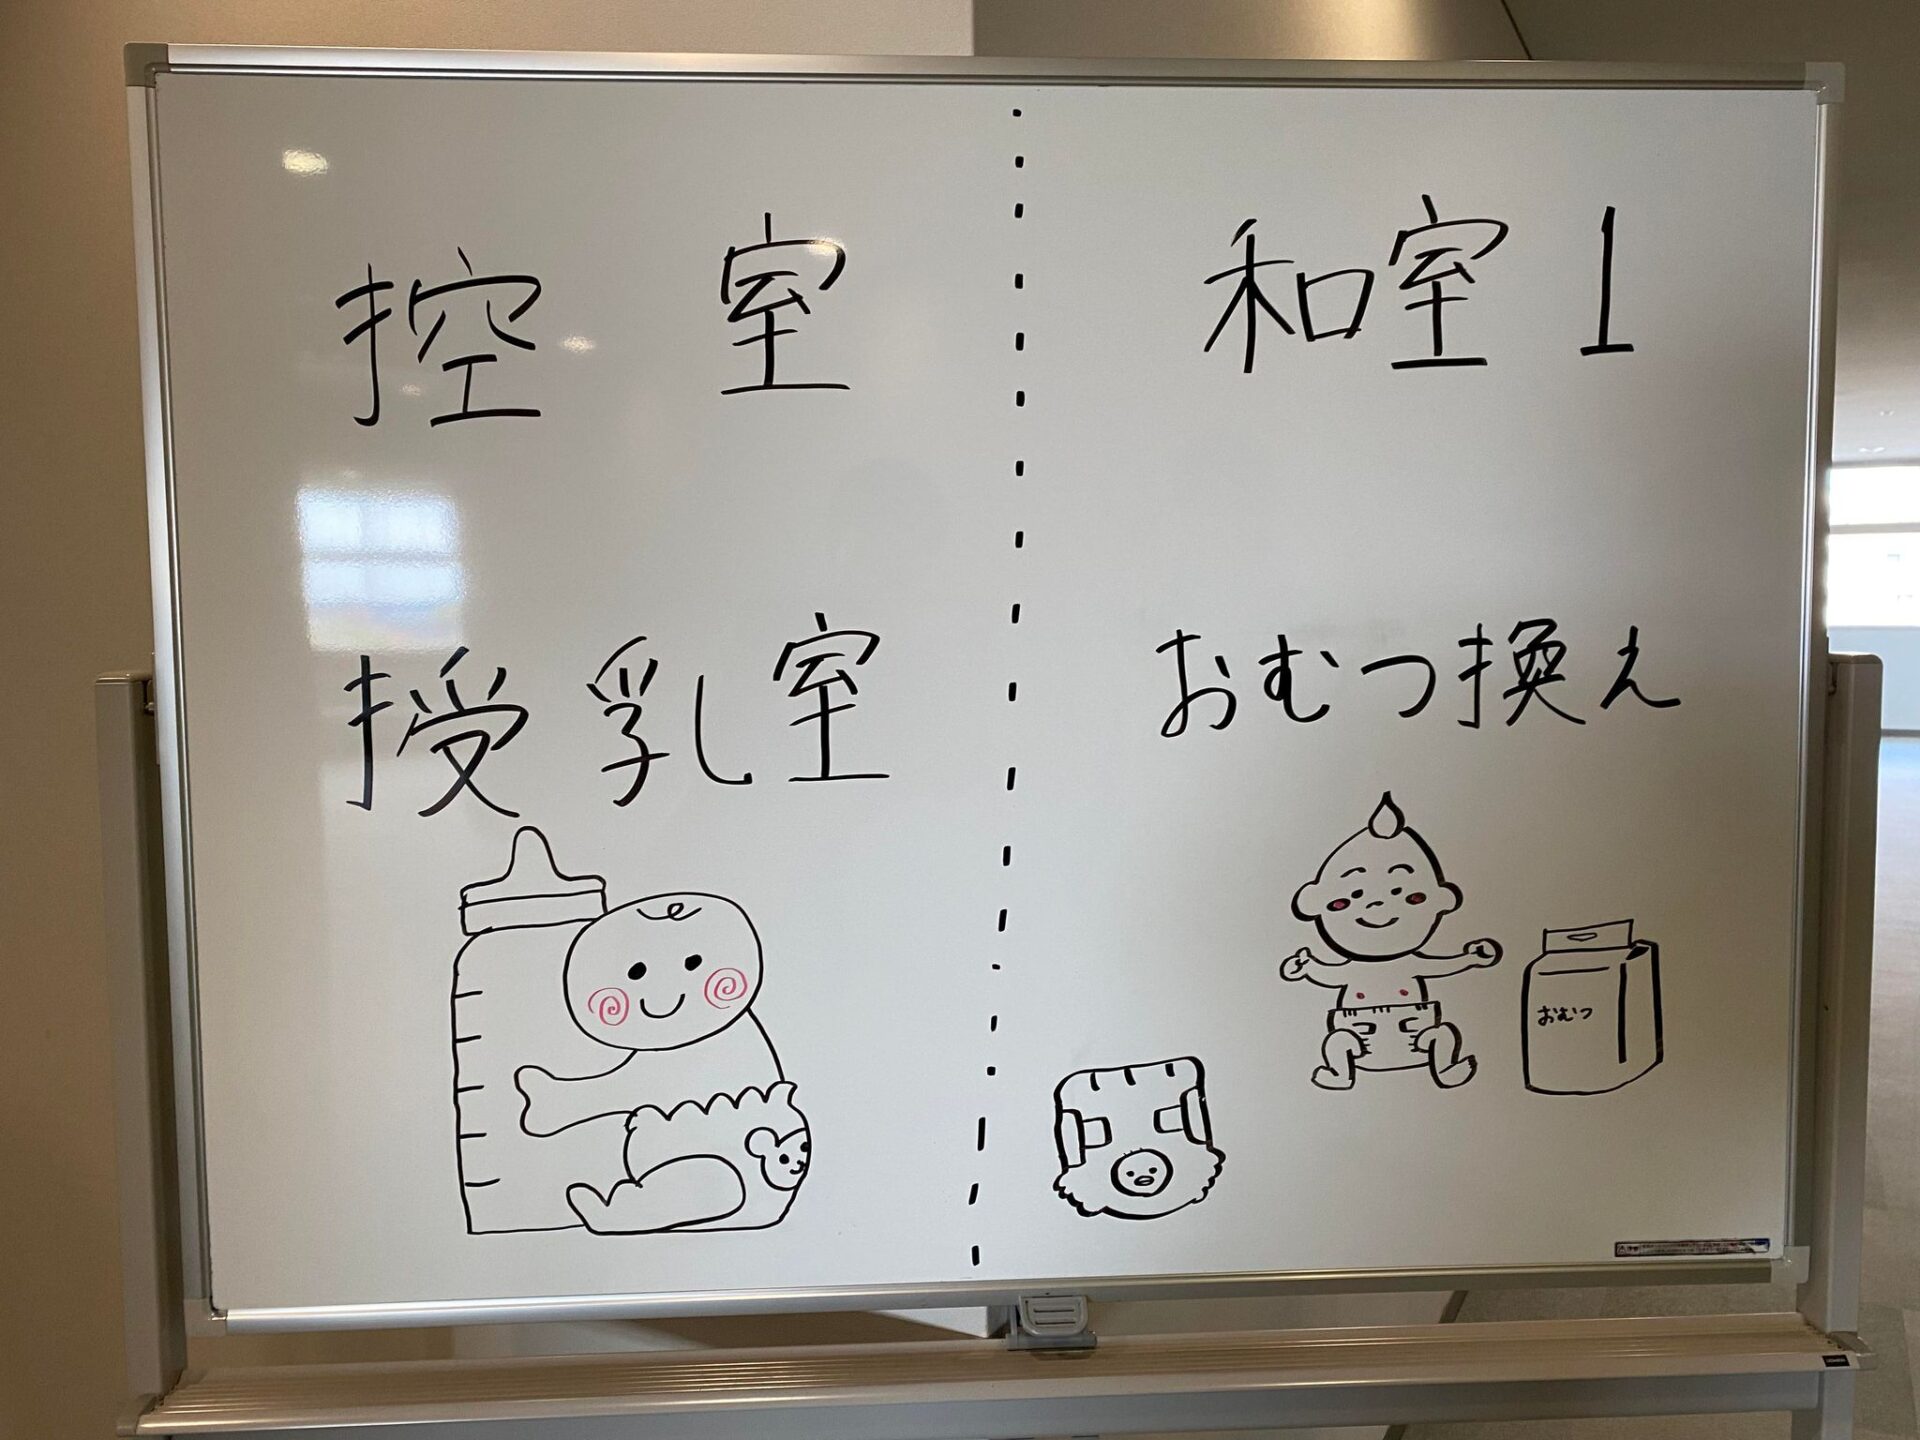 控室
授乳室
和室1
おむつ換え
おむつ